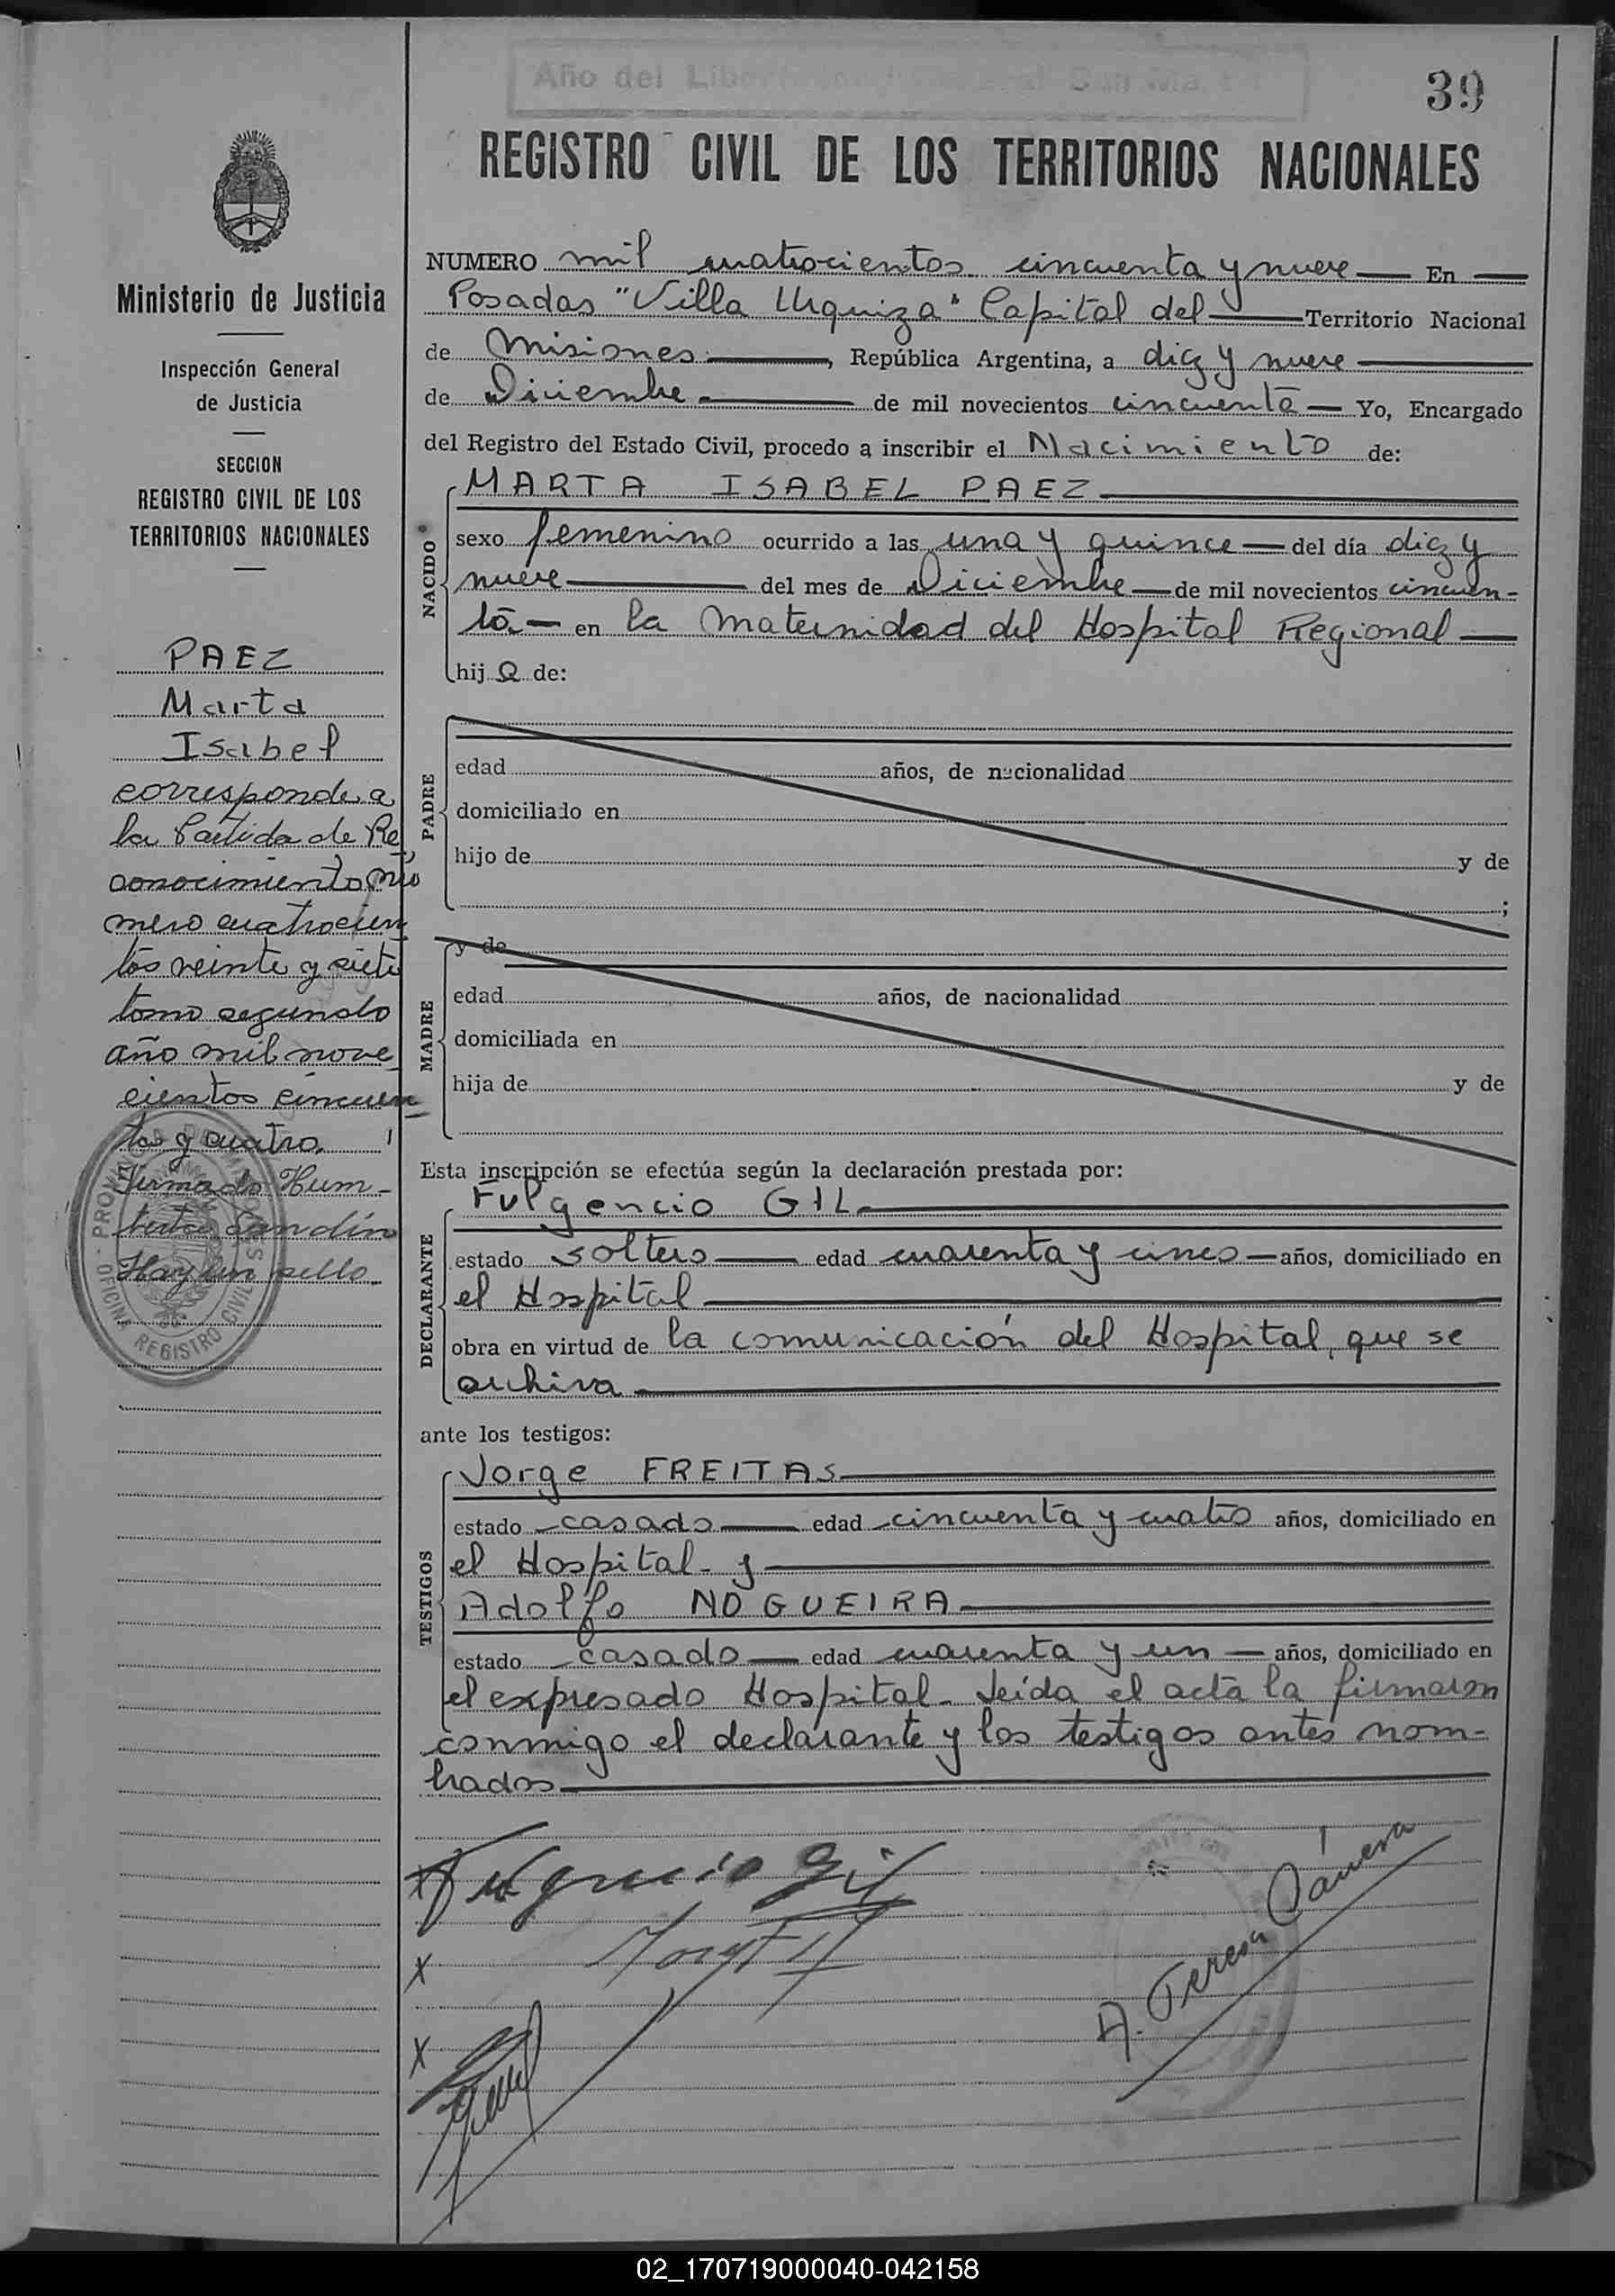 Año del Libertador General San Martín
39
REGISTRO CIVIL DE LOS TERRITORIOS NACIONALES
Ministerio de Justicia
Inspección General
de Justicia
SECCION
REGISTRO CIVIL DE LOS
TERRITORIOS NACIONALES
PAEZ
Marta
Isabel
corresponde a
la Partida de Re
conocimiento nú
mero cuatrocien
tos veinte y siete
tomo segundo
año mil nove
cientos cincuen
ta y cuatro.
Firmado Hum-
berto Sandín
Hay un sello.
PROVINCIA DE MISIONES
OFICINA REGISTRO CIVIL
NUMERO mil cuatrocientos cincuenta y nueve En
Posadas "Villa Urquiza" Capital del Territorio Nacional
de Misiones, República Argentina, a diez y nueve
de Diciembre de mil novecientos cincuenta Yo, Encargado
del Registro del Estado Civil, procedo a inscribir el Nacimiento de:
NACIDO
MARTA ISABEL PAEZ
sexo femenino ocurrido a las una y quince del día diez y
nueve del mes de Diciembre de mil novecientos cincuen-
ta en la Maternidad del Hospital Regional
hij a de:
PADRE
edad años, de nacionalidad
domiciliado en
hijo de y de
;
MADRE
y de
edad años, de nacionalidad
domiciliada en
hija de y de
Esta inscripción se efectúa según la declaración prestada por:
DECLARANTE
Fulgencio GIL
estado soltero edad cuarenta y cinco años, domiciliado en
el Hospital
obra en virtud de la comunicación del Hospital, que se
archiva
ante los testigos:
TESTIGOS
Jorge FREITAS
estado casado edad cincuenta y cuatro años, domiciliado en
el Hospital y
Adolfo NOGUEIRA
estado casado edad cuarenta y un años, domiciliado en
el expresado Hospital. Leída el acta la firmaron
conmigo el declarante y los testigos antes nom-
brados
x Fulgencio Gil
x
x
A. Teresa Cánera
02_170719000040-042158